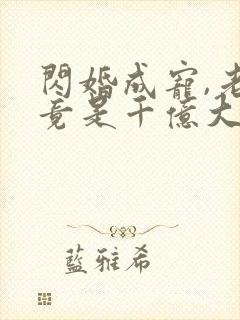 閃婚成寵,老
竟是千億大
藍雅希